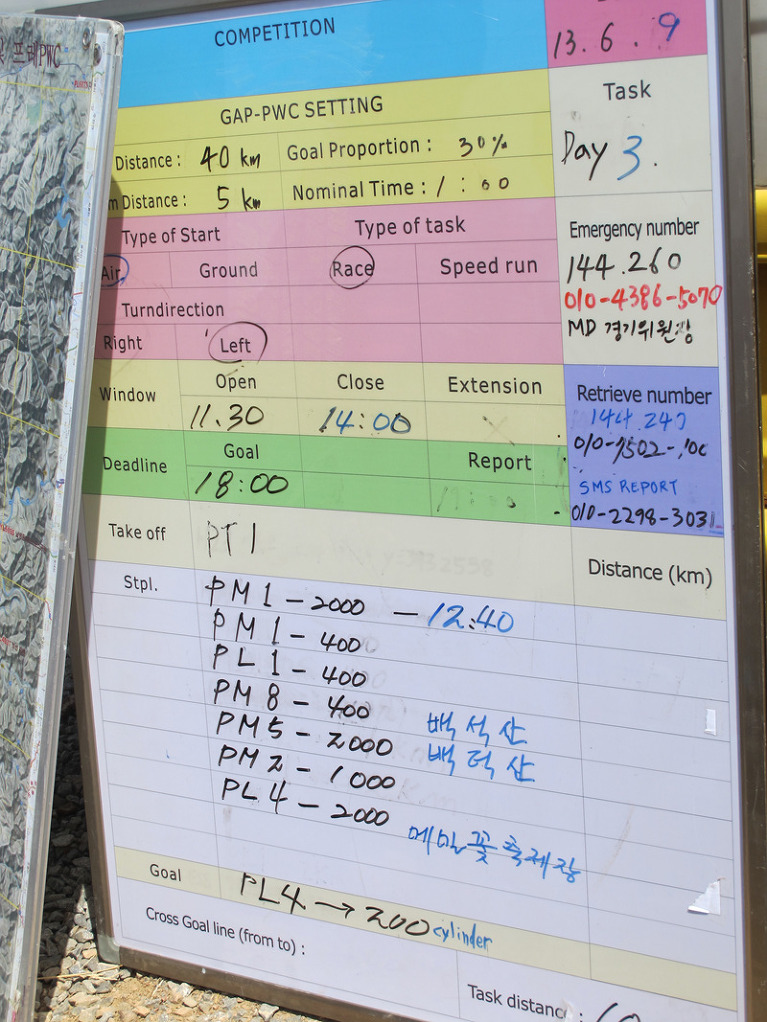 프레PWC
COMPETITION
13.6.9
GAP-PWC SETTING
Task
Distance : 40 km Goal Proportion : 30%
Day 3.
m Distance : 5 km Nominal Time : 1 : 00
Type of Start Type of task
Emergency number
Air Ground Race Speed run
144.260
010-4386-5070
Turndirection
MD 경기위원장
Right Left
Window Open Close Extension
Retrieve number
11.30 14:00
144.240
Deadline Goal Report
18:00
SMS REPORT
010-2298-3031
Take off PT 1
Distance (km)
Stpl. PM 1 - 2000 - 12:40
PM 1 - 400
PL 1 - 400
PM 8 - 400 백석산
PM 5 - 2000 백덕산
PM 2 - 1000
PL 4 - 2000 메밀꽃축제장
Goal PL4 → 200 cylinder
Cross Goal line (from to) :
Task distance :